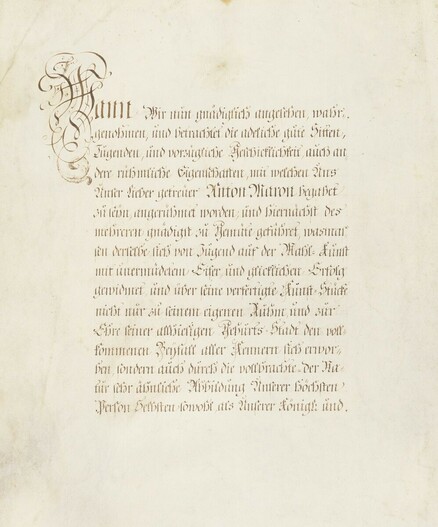 Wann Wir nun gnädiglich angesehen, wahr-
genohmen, und betrachtet die adeliche gute Sitten,
Tugenden, und vorzügliche Geschicklichkeit, auch an-
dere rühmliche Eigenschaften, mit welchen Uns
Unser lieber getreuer Anton Maron begabet
zu seyn angerühmet worden, und hiernächst des
mehreren gnädigst zu Gemüte geführet, wasmas-
sen derselbe sich von Jugend auf der Mahl-Kunst
mit unermüdetem Eifer, und glücklichen Erfolg
gewidmet und über seine verfertigte Kunst-Stücke
nicht nur zu seinem eigenen Ruhm, und zur
Ehre seiner allhiesigen Geburts-Stadt den voll-
kommenen Beyfall aller Kennern sich erwor-
ben, sondern auch durch die vollbrachte der Na-
tur sehr ähnliche Abbildung Unserer höchsten
Person Selbsten sowohl als Unserer Königl: und